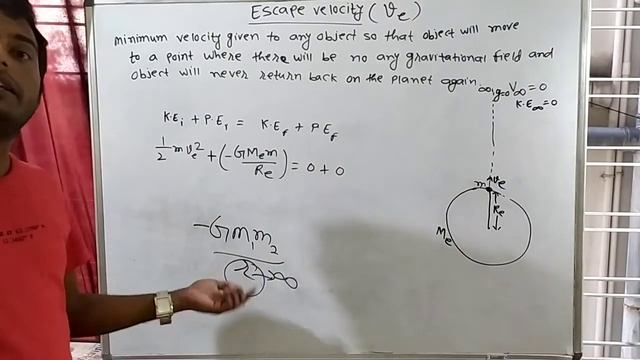 Escape velocity (Ve)
minimum velocity given to any object so that object will move
to a point where there will be no any gravitational field and
object will never return back on the planet again.
∞, g=0 V∞ = 0
K.E∞ = 0
K.Ei + P.Ei = K.Ef + P.Ef
1/2 mVe² + (-GMem/Re) = 0 + 0
m Ve
Re
Me
-Gm1m2